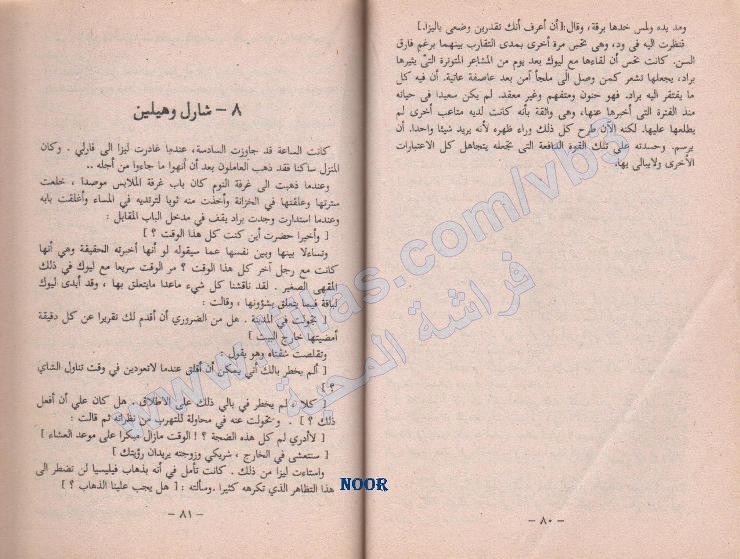 ومد يده ولمس خدها برقة، وقال:[أن أعرف أنك تقدرين وضعي باليزا.]
فنظرت اليه في ود، وهى تحس مرة أخرى بمدى التقارب بينهما برغم فارق
السن. كانت تحس أن لقاءها مع ليوك بعد يوم من المشاعر المتوترة التى يثيرها
براد، يجعلها تشعر كمن وصل الى ملجأ أمن بعد عاصفة عاتية. أن فيه كل
ما يفتقر اليه براد. فهو حنون ومتفهم وغير معقد. لم يكن سعيدا في حياته
منذ الفترة التى أخبرها عنها، وهى واثقة بأنه كانت لديه متاعب أخرى لم
يطلعها عليها. لكنه الآن طرح كل ذلك وراء ظهره لأنه يريد شيئا واحدا. أن
يرسم. وحسدته على تلك القوة الدافعة التى تجعله يتجاهل كل الاعتبارات
الأخرى ولايبالى بها.
- ٨٠ -
٨ - شارل وهيلين
كانت الساعة قد جاوزت السادسة، عندما غادرت ليزا الى فارلي . وكان
المنزل ساكنا فقد ذهب العاملون بعد أن أنهوا ما جاءوا من أجله ..
وعندما ذهبت الى غرفة النوم كان باب غرفة الملابس موصدا ، خلعت
سترتها وعلقتها في الخزانة وأخذت منه ثوبا لترتديه في المساء وأغلقت بابه
وعندما استدارت وجدت براد يقف في مدخل الباب المقابل :
[ وأخيرا حضرت أين كنت كل هذا الوقت ؟ ]
وتساءلا بينها وبين نفسها عما سيقوله لو أنها أخبرته الحقيقة وهي أنها
كانت مع رجل آخر كل هذا الوقت ؟ مر الوقت سريعا مع ليوك في ذلك
المقهى الصغير . لقد ناقشنا كل شيء ماعدا مايتعلق بها ، وقد أبدى ليوك
لباقة فيما يتعلق بشؤونها ، وقالت :
[ تجولت في المدينة . هل من الضروري أن أقدم لك تقريرا عن كل دقيقة
أمضيتها خارج البيت ]
وتقلصت شفتاه وهو يقول :
[ ألم يخطر ببالك أني يمكن أن أقلق عندما لاتعودين في وقت تناول الشاي
؟ ]
[ كلا ، لم يخطر في بالي ذلك على الاطلاق . هل كان علي أن أفعل
ذلك ؟ ] . وتحولت عنه في محاولة للتهرب من نظراته ثم قالت :
[ لاأدري لم كل هذه الضجة ؟ ! الوقت مازال مبكرا على موعد العشاء ]
[ ستتعشى في الخارج ، شريكي وزوجته يريدان رؤيتك ]
واستاءت ليزا من ذلك . كانت تأمل في أنه بذهاب فيليسيا لن تضطر الى
هذا التظاهر الذي تكرهه كثيرا .وسألته : [ هل يجب علينا الذهاب ؟ ]
- ٨١ -
NOOR
www.liilas.com/vb3
فراشة المحبة